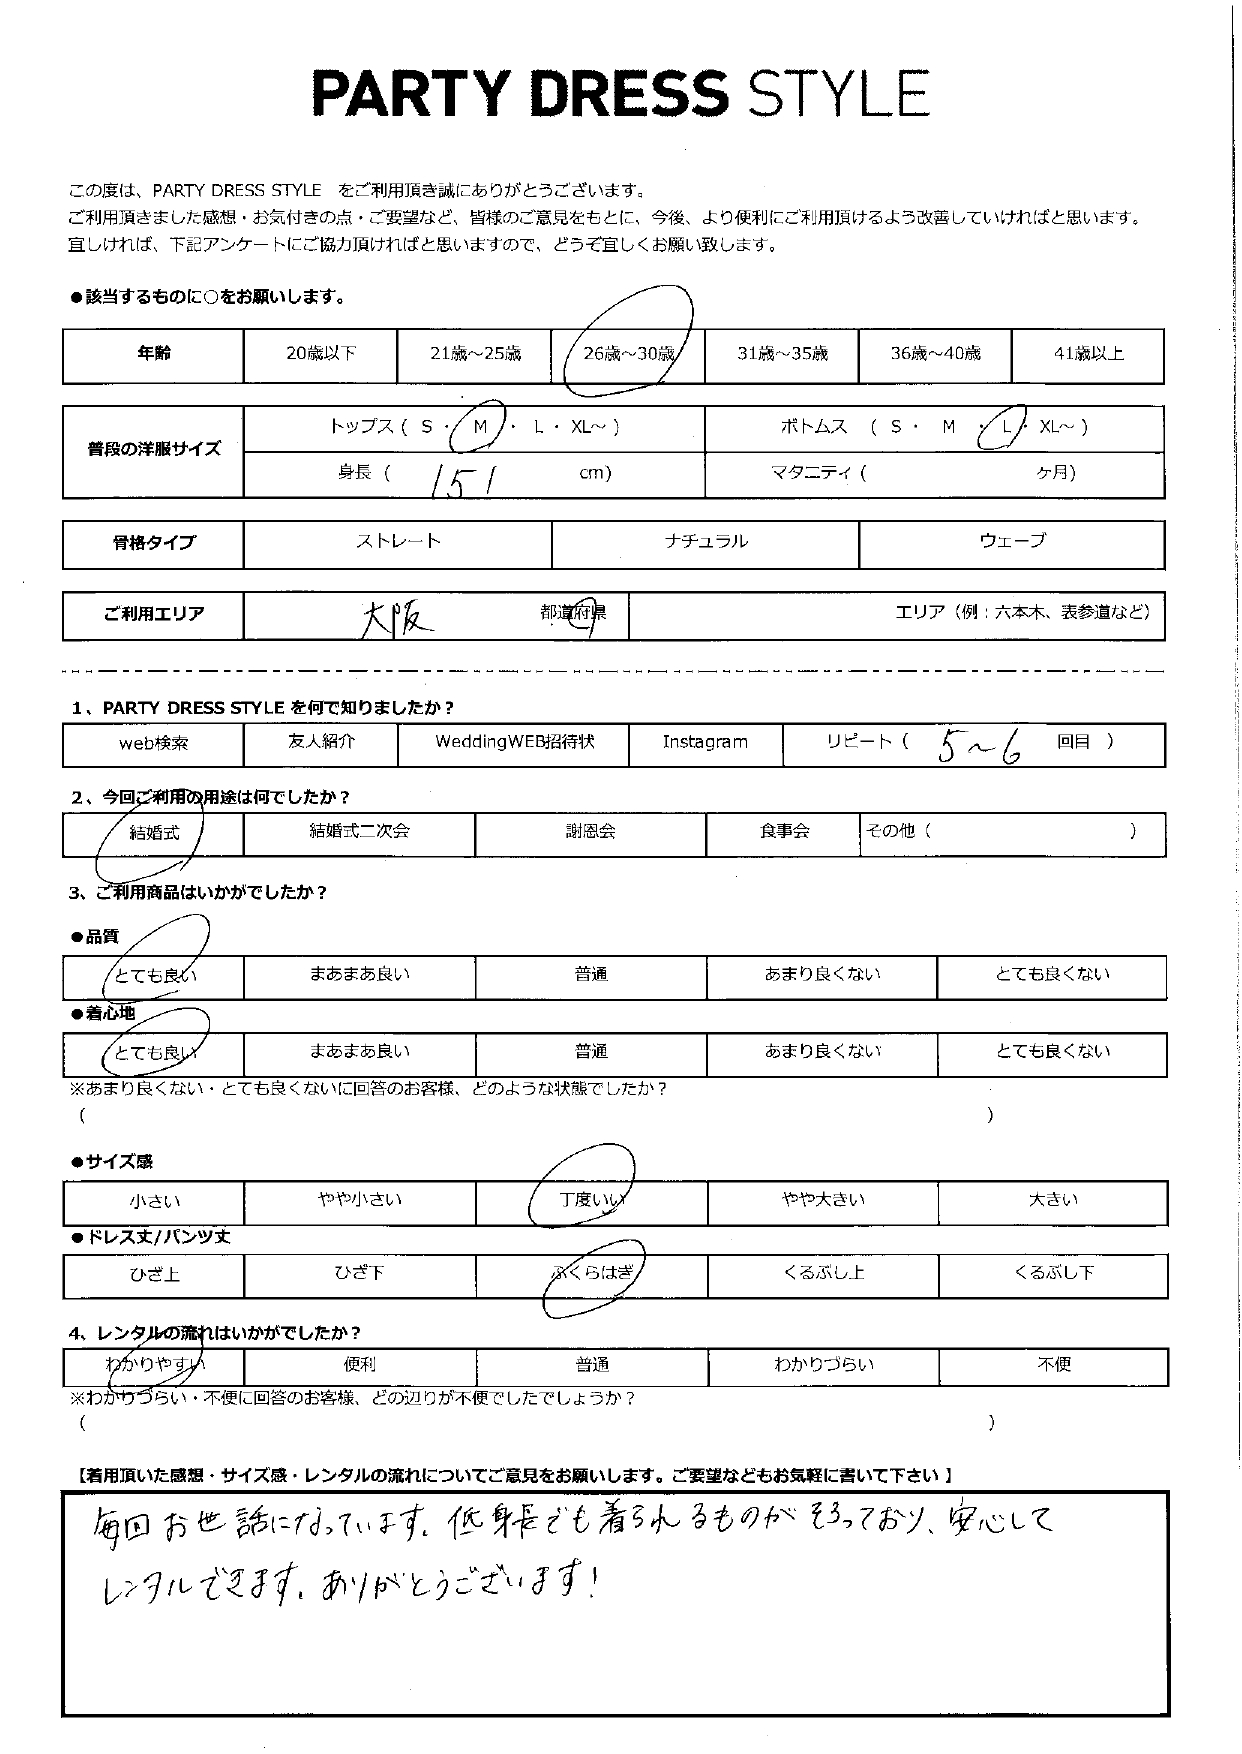 PARTY DRESS STYLE
この度は、PARTY DRESS STYLE をご利用頂き誠にありがとうございます。
ご利用頂きました感想・お気付きの点・ご要望など、皆様のご意見をもとに、今後、より便利にご利用頂けるよう改善していければと思います。
宜しければ、下記アンケートにご協力頂ければと思いますので、どうぞ宜しくお願い致します。
●該当するものに○をお願いします。
年齢 20歳以下 21歳～25歳 26歳～30歳 31歳～35歳 36歳～40歳 41歳以上
普段の洋服サイズ トップス ( S ・ M ・ L ・ XL～ ) ボトムス ( S ・ M ・ L ・ XL～ )
身長 ( 151 cm) マタニティ ( ケ月)
骨格タイプ ストレート ナチュラル ウェーブ
ご利用エリア 大阪 都道府県 エリア（例：六本木、表参道など）
1、PARTY DRESS STYLE を何で知りましたか？
web検索 友人紹介 WeddingWEB招待状 Instagram リピート ( 5～6 回目 )
2、今回ご利用の用途は何でしたか？
結婚式 結婚式二次会 謝恩会 食事会 その他 ( )
3、ご利用商品はいかがでしたか？
●品質
とても良い まあまあ良い 普通 あまり良くない とても良くない
●着心地
とても良い まあまあ良い 普通 あまり良くない とても良くない
※あまり良くない・とても良くないに回答のお客様、どのような状態でしたか？
( )
●サイズ感
小さい やや小さい 丁度いい やや大きい 大きい
●ドレス丈/パンツ丈
ひざ上 ひざ下 ふくらはぎ くるぶし上 くるぶし下
4、レンタルの流れはいかがでしたか？
わかりやすい 便利 普通 わかりづらい 不便
※わかりづらい・不便に回答のお客様、どの辺りが不便でしたでしょうか？
( )
【着用頂いた感想・サイズ感・レンタルの流れについてご意見をお願いします。ご要望などもお気軽に書いて下さい】
毎回お世話になっています。低身長でも着られるものがそろっており、安心して
レンタルできます。ありがとうございます！